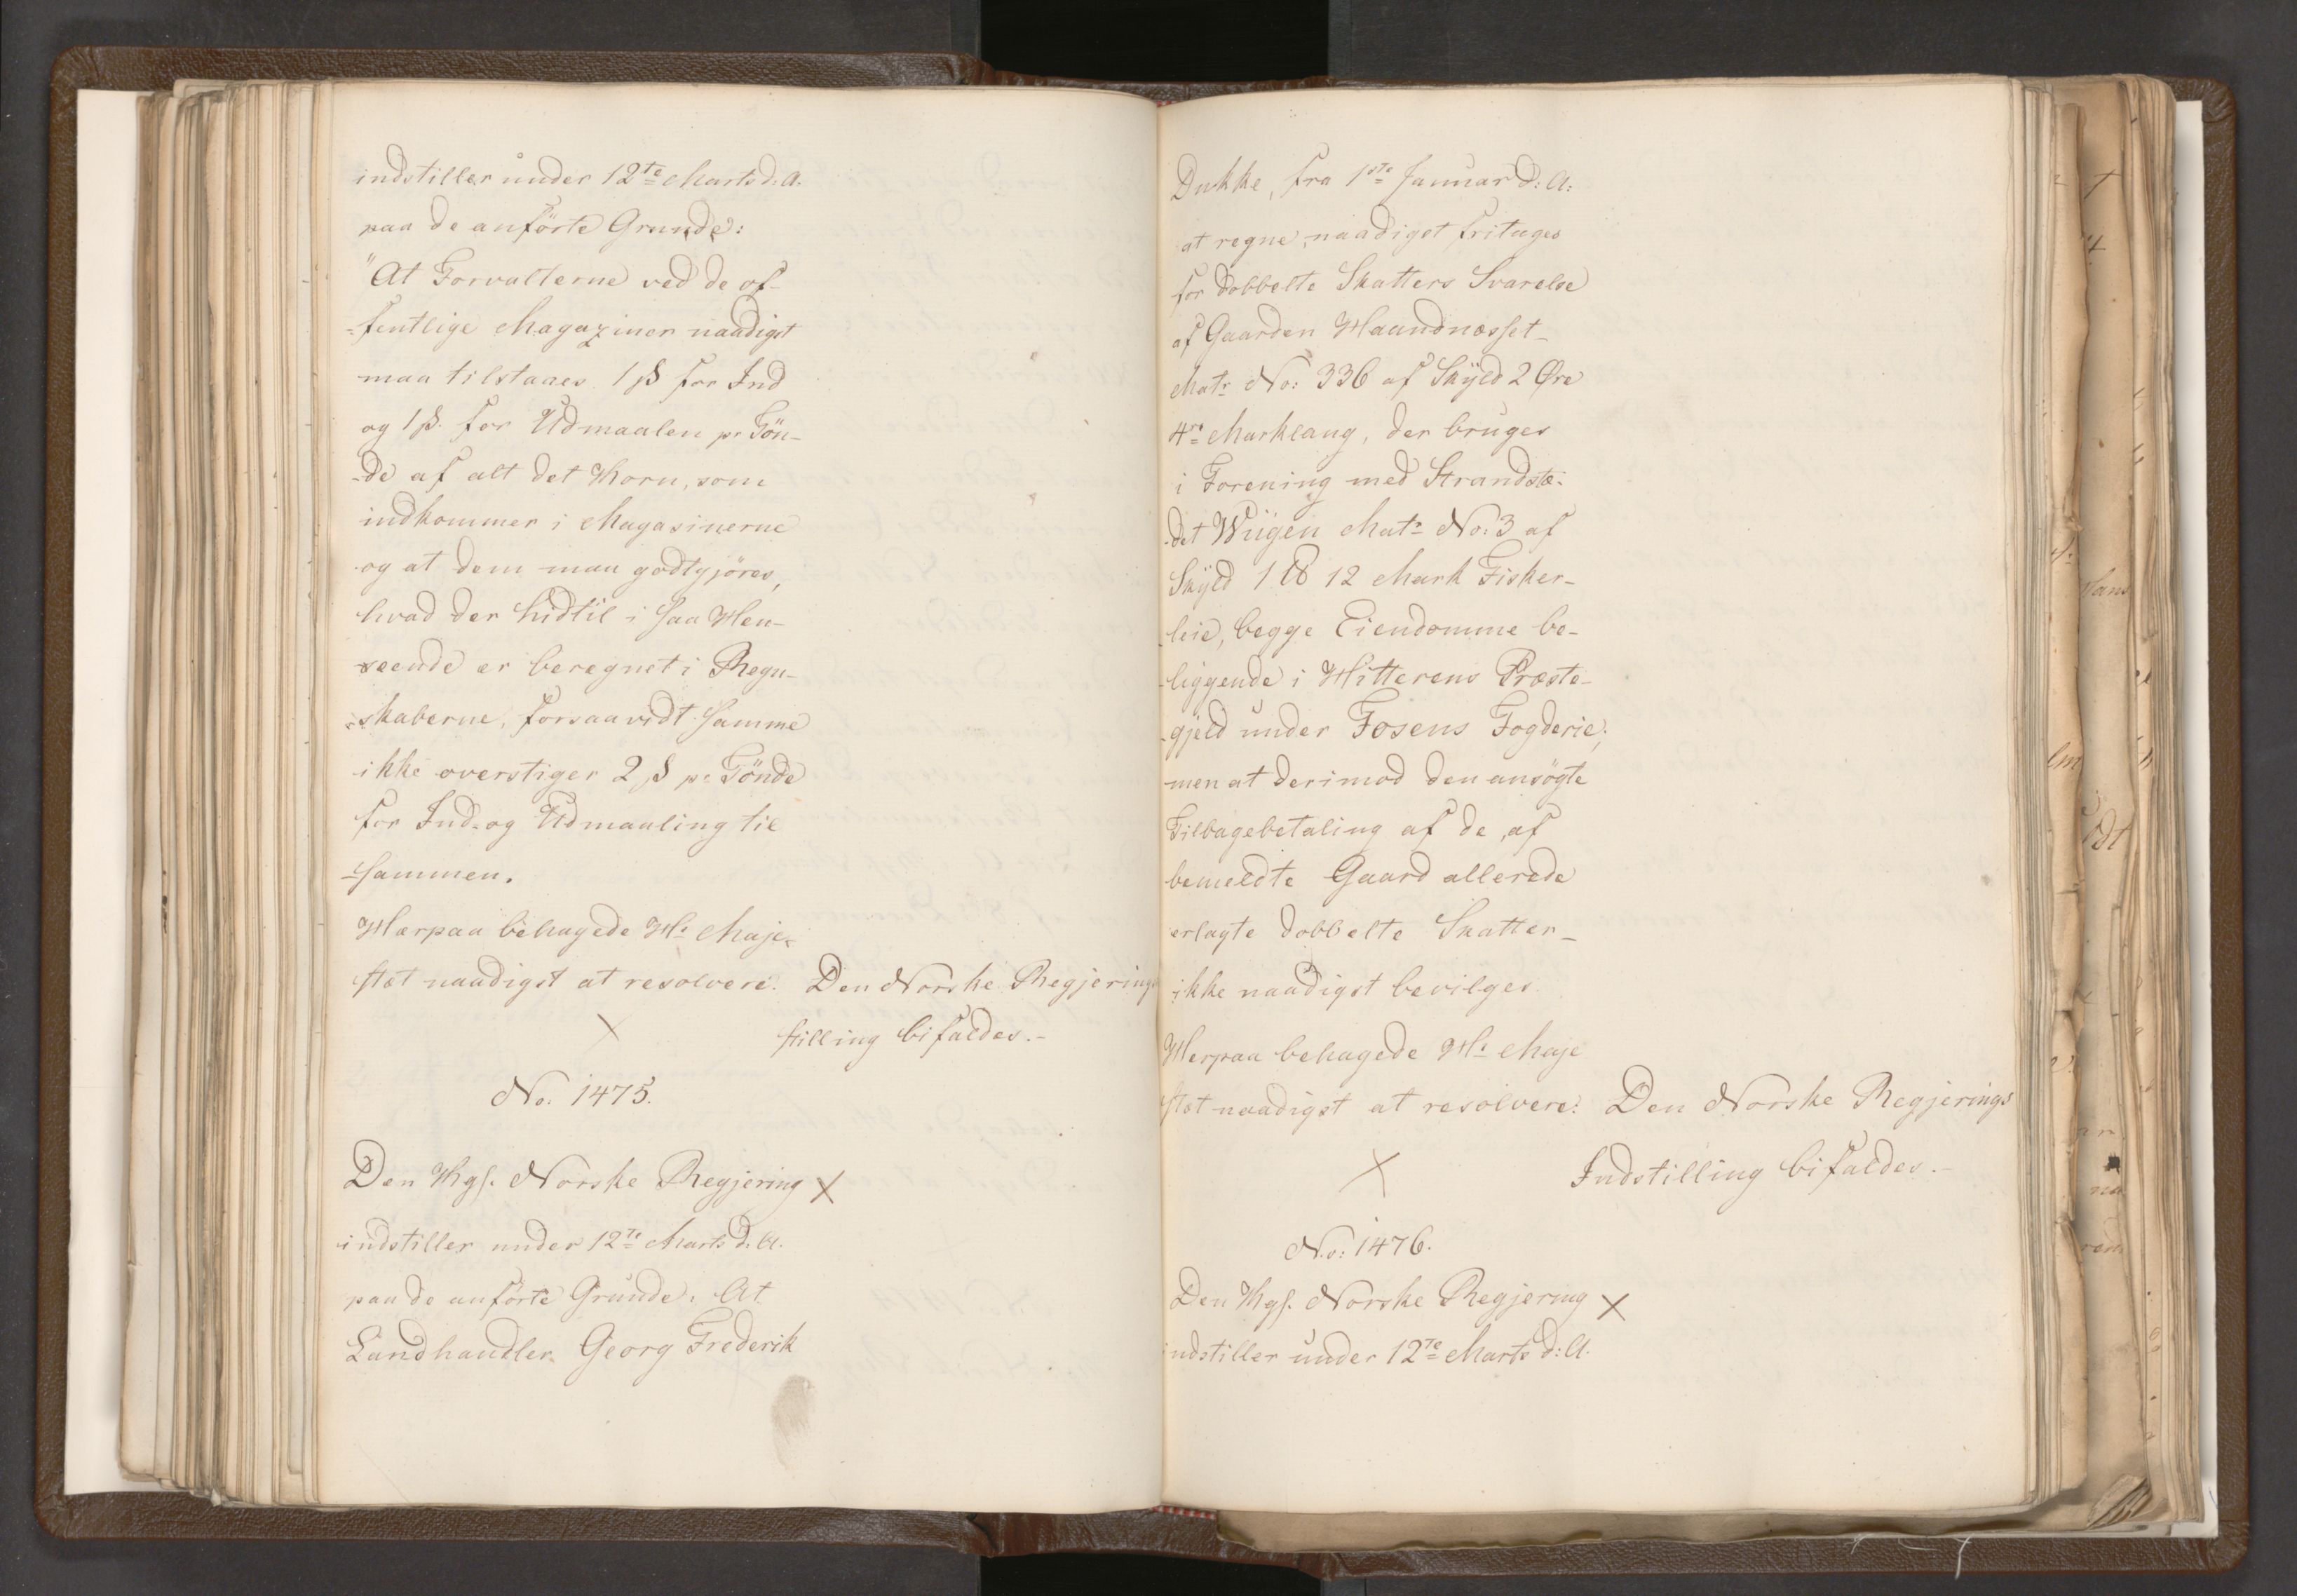 indstiller under 12te Marts d: A.
paa de anførte Grunde:
"At Forvalterne ved de of-
-fentlige Magaziner naadigst
maa tilstaaes 1 ß for Ind
og 1 ß. for Udmaalen pr Tön-
-de af alt det Korn, som
indkommer i Magasinerne
og at dem maa godtgjöres,
hvad der hidtil i saa Hen-
-seende er beregnet i Regn-
-skaberne, forsaavidt samme
ikke overstiger 2 ß pr Tönde
for Ind- og Udmaaling til
-sammen.
Herpaa behagede Hs Maje-
stæt naadigst at resolvere: Den Norske Regjerings
stilling bifaldes.-
No. 1475.
Den Kgl. Norske Regjering
indstiller under 12te Marts d. A.
paa de anförte Grunde: At
Landhandler Georg Frederik
Dukke, fra 1ste Januar d: A:
at regne, naadigst fritages
for dobbelte Skatters Svarelse
af Gaarden Haandnæsset
Matr No: 336 af Skyld 2 Øre
4re Marklaug, der bruges
i Forening med Strandstæ-
-det Wiigen Matr No: 3 af
Skyld 1 ℔ 12 Mark Fisker-
leie, begge Eiendomme be-
-liggende i Hitterens Præste-
-gjeld under Fosens Fogderie;
men at derimod den ansögte
Tilbagebetaling af de, af
bemeldte Gaard allerede
erlagte dobbelte Skatter
ikke naadigst bevilges.
Herpaa behagede Hs Maje
stæt naadigst at resolvere: Den Norske Regjerings
Indstilling bifaldes.-
No: 1476.
Den Kgl. Norske Regjering
indstiller under 12te Marts d: A.